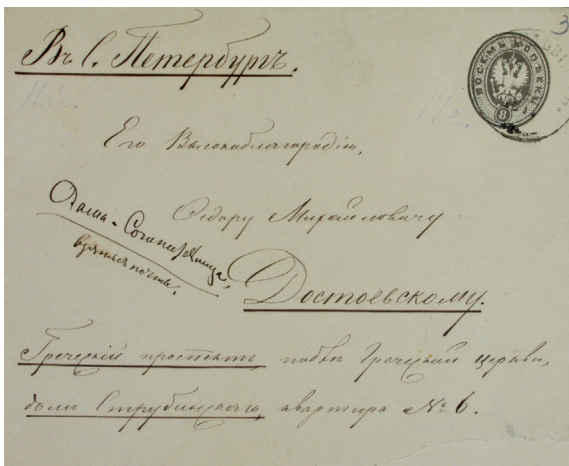 Въ С. Петербургъ.
ВОСЕМЬ КОПѢЕКЪ
8
3
Его Высокоблагородію,
Ѳедору Михайловичу
Достоевскому.
Греческій проспектъ, подлѣ Греческой церкви,
домъ Струбинскаго, квартира № 6.